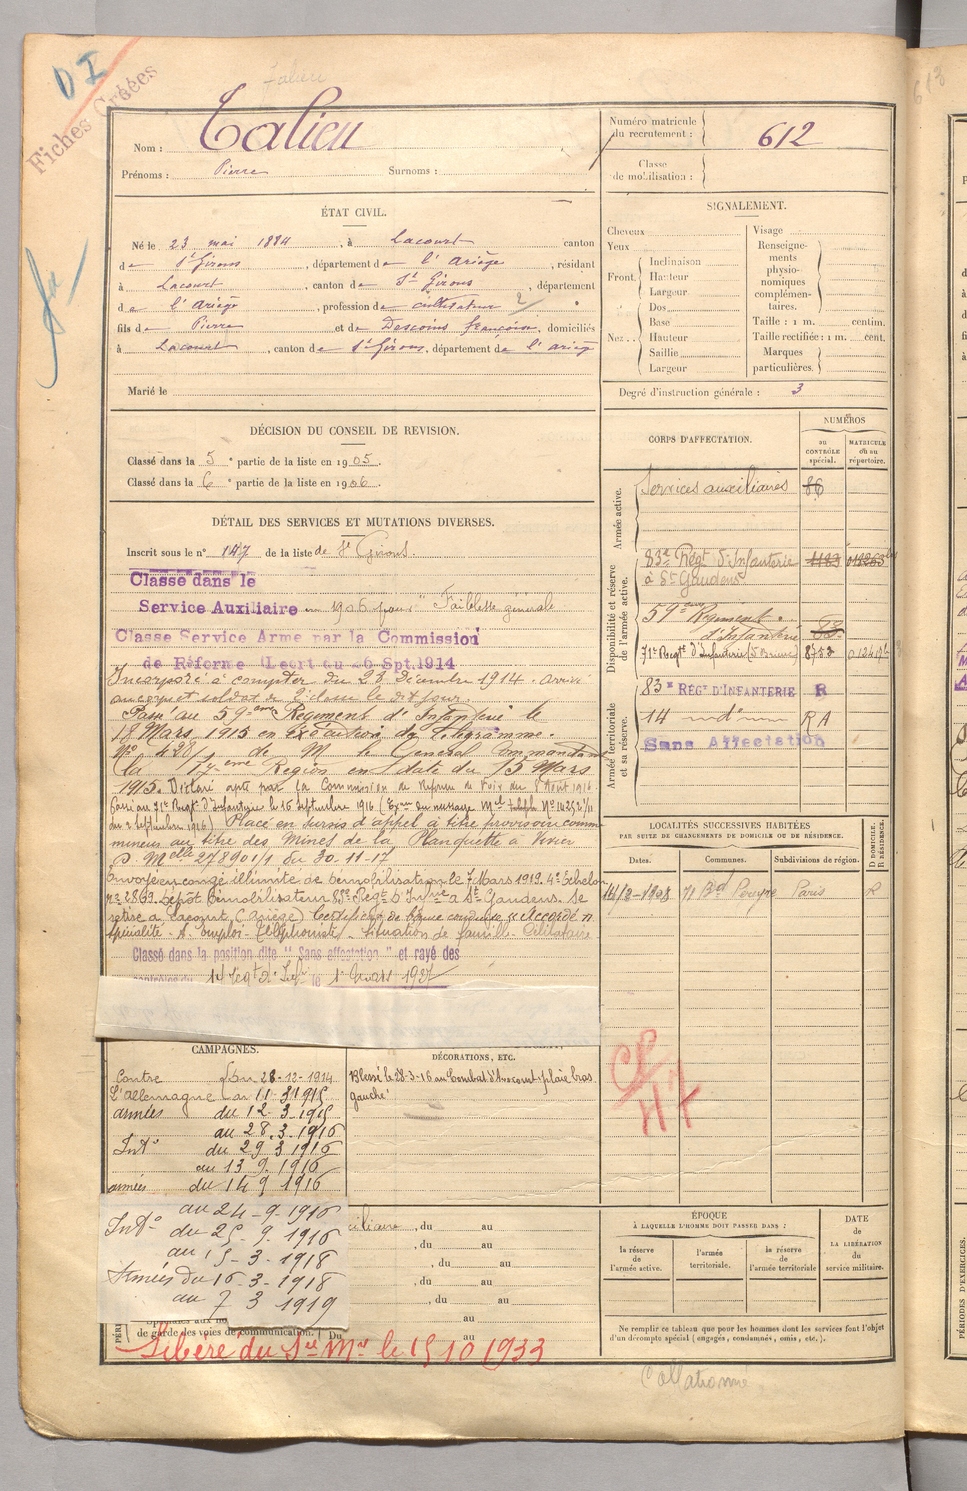 D I
Fiches Créées
Talieu
Nom : Talieu
Prénoms : Pierre Surnoms :
Numéro matricule du recrutement : 612
Classe de mobilisation :
ÉTAT CIVIL.
Né le 23 mai 1884, à Lacourt canton
de St Girons, département de l'Ariège, résidant
à Lacourt, canton de St Girons, département
d e l'Ariège, profession de cultivateur 2
fils de Pierre et de Descoins françoise, domiciliés
à Lacourt, canton de St Girons, département de l'Ariège
Marié le
SIGNALEMENT.
Cheveux
Yeux
Front. Inclinaison
Hauteur
Largeur
Nez.. Dos
Base
Hauteur
Saillie
Largeur
Visage
Renseignements physionomiques complémentaires.
Taille : 1 m. centim.
Taille rectifiée : 1 m. cent.
Marques particulières.
Degré d'instruction générale : 3
DÉCISION DU CONSEIL DE REVISION.
Classé dans la 5e partie de la liste en 1905.
Classé dans la 6e partie de la liste en 1906.
DÉTAIL DES SERVICES ET MUTATIONS DIVERSES.
Inscrit sous le n° 147 de la liste de St Girons.
Classé dans le
Service Auxiliaire en 1906 pour "Faiblesse générale
Classé Service Armé par la Commission
de Réforme (Décrt du 26 Spt.1914
Incorporé à compter du 28 Décembre 1914. arrivé
au corps et soldat de 2e classe le dit jour.
Passé au 59eme Régiment d'Infanterie le
18 Mars 1915 en exécution du Télégramme.
N° 4281 de M. le Général commandant
la 17eme Région en date du 13 Mars
1915. Déclaré apte par la Commission de Réforme de Foix du 8 Août 1916
Passé au 71e Regt d'Infanterie le 16 septembre 1916
du 2 septembre 1916) Placé en sursis d'appel à titre provisoire comme
mineur au titre des Mines de la Planquette à
D. Melle 278901/1 du 30-11-17
Envoyé en congé illimité de démobilisation le 7 Mars 1919. 4e Echelon
n° 2839. Dépôt Démobilisateur 83e Régt d'Infie à St Gaudens. Se
retire à Lacourt (Ariège) Certificat de bonne conduite "Accordé"
Spécialité - A. emploi - Téléphoniste - situation de famille - Célibataire
Classé dans la position dite "Sans affectation" et rayé des
contrôles du 14 Regt d'Inf. le 1r Mars 1927
CORPS D'AFFECTATION.
NUMÉROS
au CONTRÔLE spécial.
MATRICULE ou au répertoire.
Armée active.
Services auxiliaires 86
Disponibilité et réserve de l'armée active.
83e Régt d'Infanterie 1183
à St Gaudens
59eme Régiment
d'Infanterie
71e Regt d'Infanterie (St Brieuc) 8753
Armée territoriale et sa réserve.
83e RÉGT D'INFANTERIE R
14 — d° — RA
Sans Affectation
LOCALITÉS SUCCESSIVES HABITÉES
PAR SUITE DE CHANGEMENTS DE DOMICILE OU DE RÉSIDENCE.
Dates. Communes. Subdivisions de région. D DOMICILE R RÉSIDENCE.
14/2-1908 71 Bd Paris R
CP
H7
CAMPAGNES.
Contre Du 28-12-1914
L'allemagne au 11-3-1915
armées du 12-3-1915
au 28.3.1916
Intr du 29 3 1916
au 13 9. 1916
armées du 14 9 1916
au 24-9-1916
Intr du 25-9-1916
au 15-3-1918
Armées du 16-3-1918
au 7 3 1919
DÉCORATIONS, ETC.
Blessé le 28-3-16 au Combat d'Avocourt - plaie bras
gauche
, du au
, du au
, du au
, du au
, du au
au
de garde des voies de communication. Du au
ÉPOQUE
À LAQUELLE L'HOMME DOIT PASSER DANS :
la réserve de l'armée active.
l'armée territoriale.
la réserve de l'armée territoriale
DATE de LA LIBÉRATION du service militaire.
Ne remplir ce tableau que pour les hommes dont les services font l'objet
d'un décompte spécial (engagés, condamnés, omis, etc.).
Libéré du Sce Mre le 15 10 1933
Collationné
613
PÉRIODES D'EXERCICES.